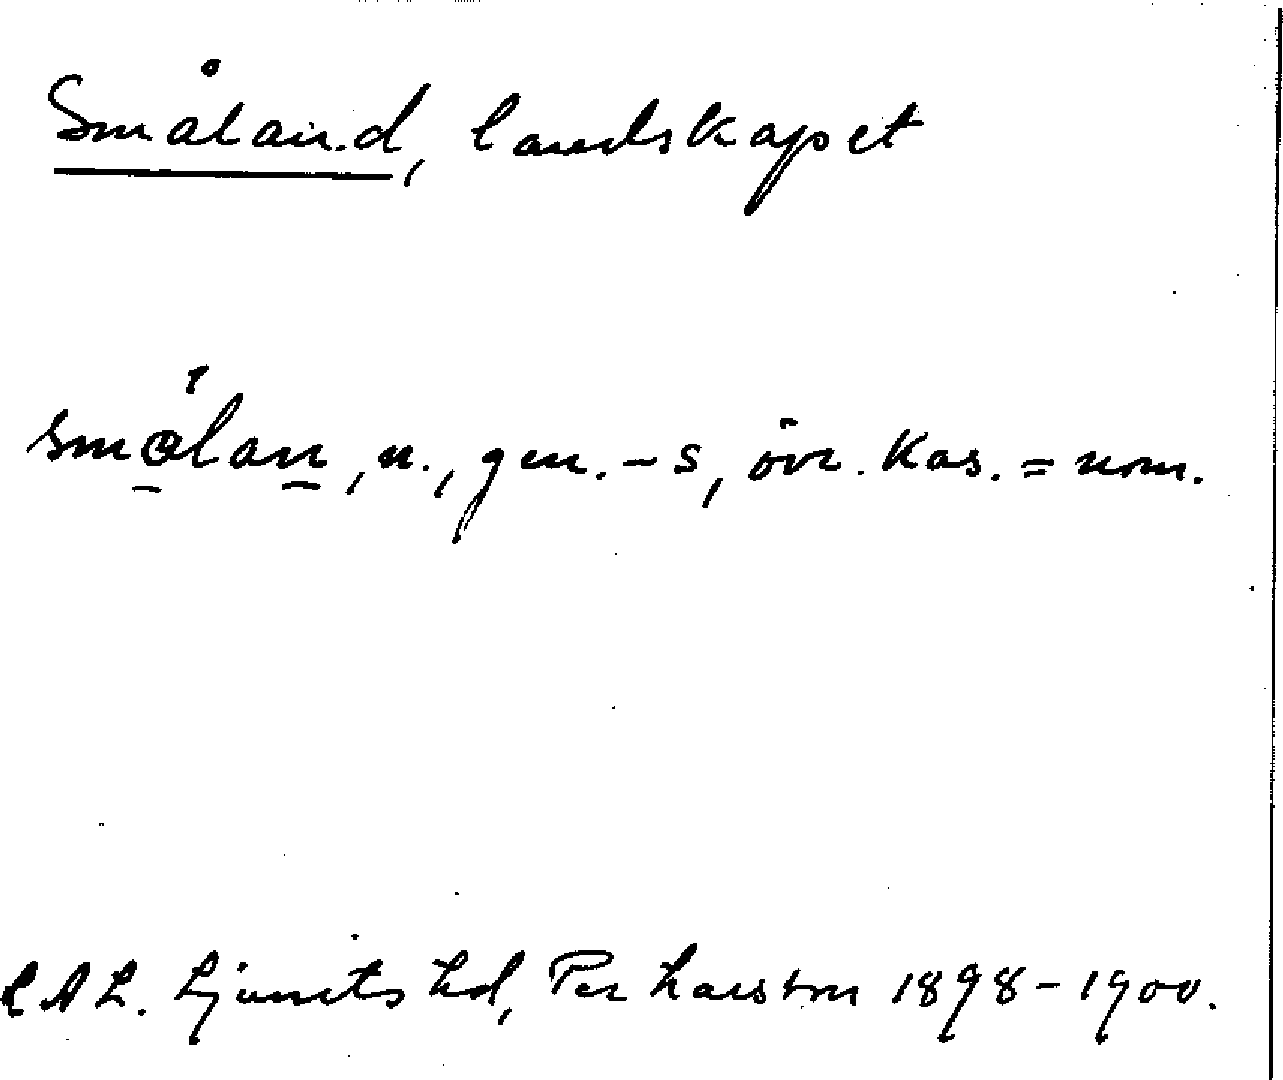 Småland, landskapet
smålan, n., gen. -s, övr. kas. = nom.
LAL. Ljunits hd, Per Larsson 1898-1900.